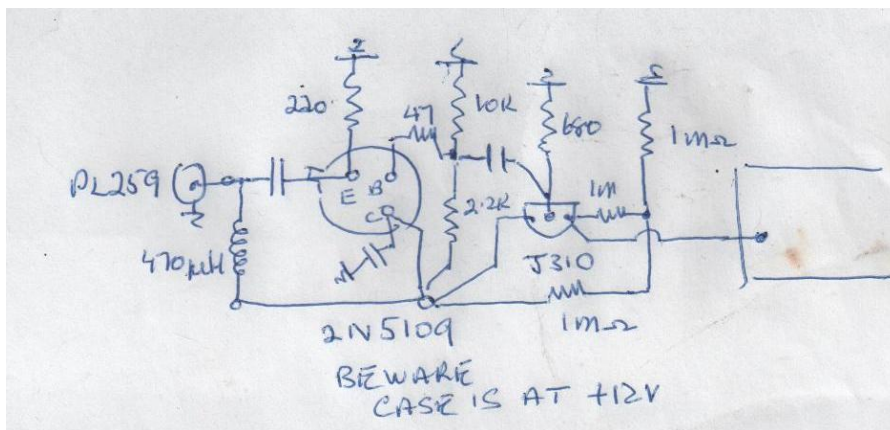 220
10K
47
680
1MΩ
PL259
E
B
C
2.2K
1M
470µH
J310
2N5109
1MΩ
BEWARE
CASE IS AT +12V